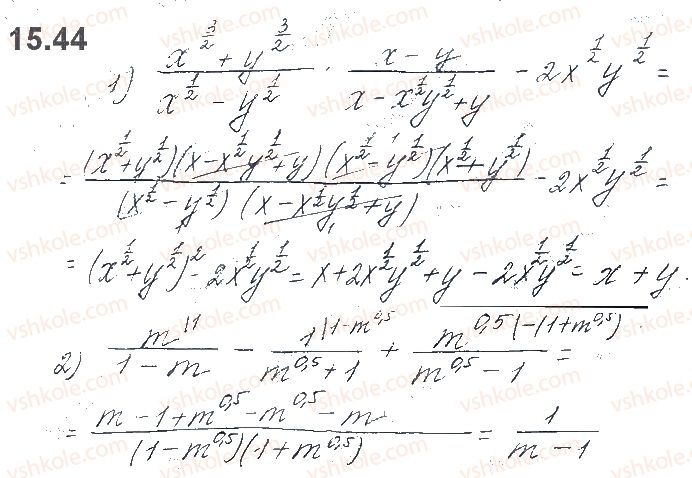 15.44
1) (x^(3/2) + y^(3/2))/(x^(1/2) − y^(1/2)) · (x − y)/(x − x^(1/2)y^(1/2) + y) − 2x^(1/2)y^(1/2) =
= ((x^(1/2) + y^(1/2))(x − x^(1/2)y^(1/2) + y)(x^(1/2) − y^(1/2))(x^(1/2) + y^(1/2)))/((x^(1/2) − y^(1/2))(x − x^(1/2)y^(1/2) + y)) − 2x^(1/2)y^(1/2) =
= (x^(1/2) + y^(1/2))^2 − 2x^(1/2)y^(1/2) = x + 2x^(1/2)y^(1/2) + y − 2x^(1/2)y^(1/2) = x + y.
2) m^(|1)/(1 − m) − 1^(|1−m^0,5)/(m^0,5 + 1) + m^0,5 ^(|−(1+m^0,5))/(m^0,5 − 1) =
= (m − 1 + m^0,5 − m^0,5 − m)/((1 − m^0,5)(1 + m^0,5)) = 1/(m − 1)
vshkole.com